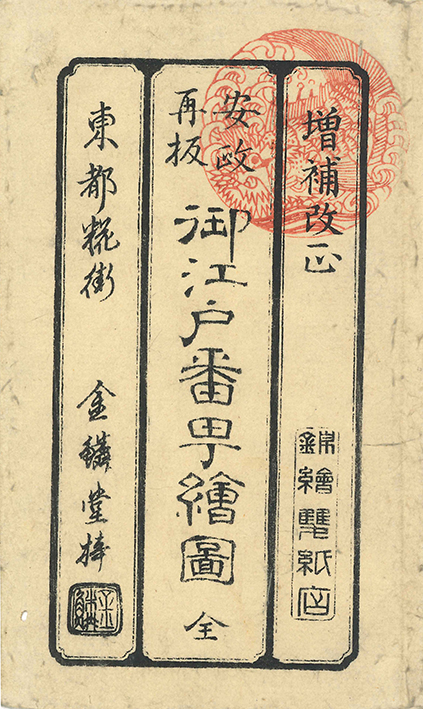 増補改正
錦繪雙紙店
安政
再板
御江戸番甼繪圖 全
東都糀街 金鱗堂梓